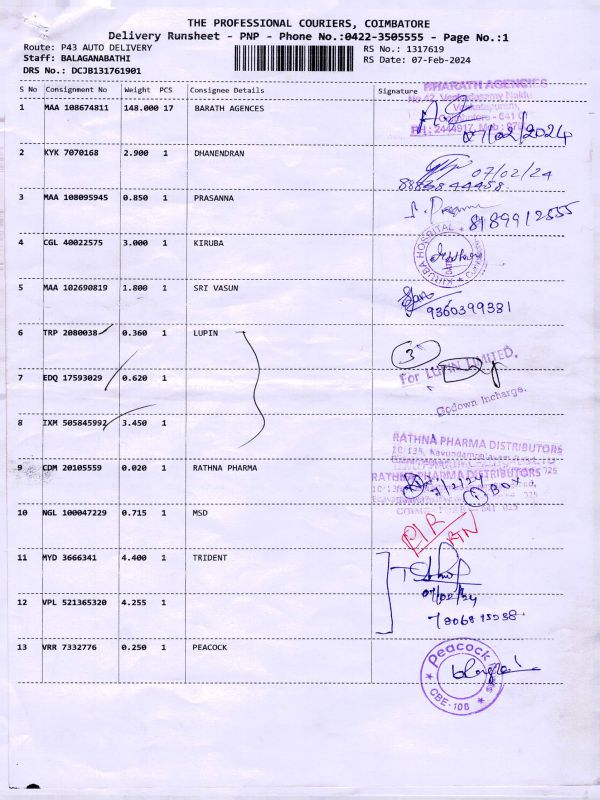 THE PROFESSIONAL COURIERS, COIMBATORE
Delivery Runsheet - PNP - Phone No.:0422-3505555 - Page No.:1
Route: P43 AUTO DELIVERY
RS No.: 1317619
Staff: BALAGANABATHI
RS Date: 07-Feb-2024
DRS No.: DCJB131761901
S No Consignment No Weight PCS Consignee Details Signature
BHARATH AGENCIES
1 MAA 108674811 148.000 17 BARATH AGENCES
07/02/2024
2 KYK 7070168 2.900 1 DHANENDRAN
07/02/24
3 MAA 108095945 0.850 1 PRASANNA
8189912555
4 CGL 40022575 3.000 1 KIRUBA
KIRUBA HOSPITAL
5 MAA 102690819 1.800 1 SRI VASUN
9360399381
6 TRP 2080038 0.360 1 LUPIN
3
For LUPIN LIMITED.
7 EDQ 17593029 0.620 1
Godown Incharge.
8 IXM 505845992 3.450 1
RATHNA PHARMA DISTRIBUTORS
9 CDM 20105559 0.020 1 RATHNA PHARMA
RATHNA PHARMA DISTRIBUTORS
7/2/24
1 BOX
10 NGL 100047229 0.715 1 MSD
P/R
RTN
11 MYD 3666341 4.400 1 TRIDENT
07/02/24
12 VPL 521365320 4.255 1
13 VRR 7332776 0.250 1 PEACOCK
Peacock
CBE-108